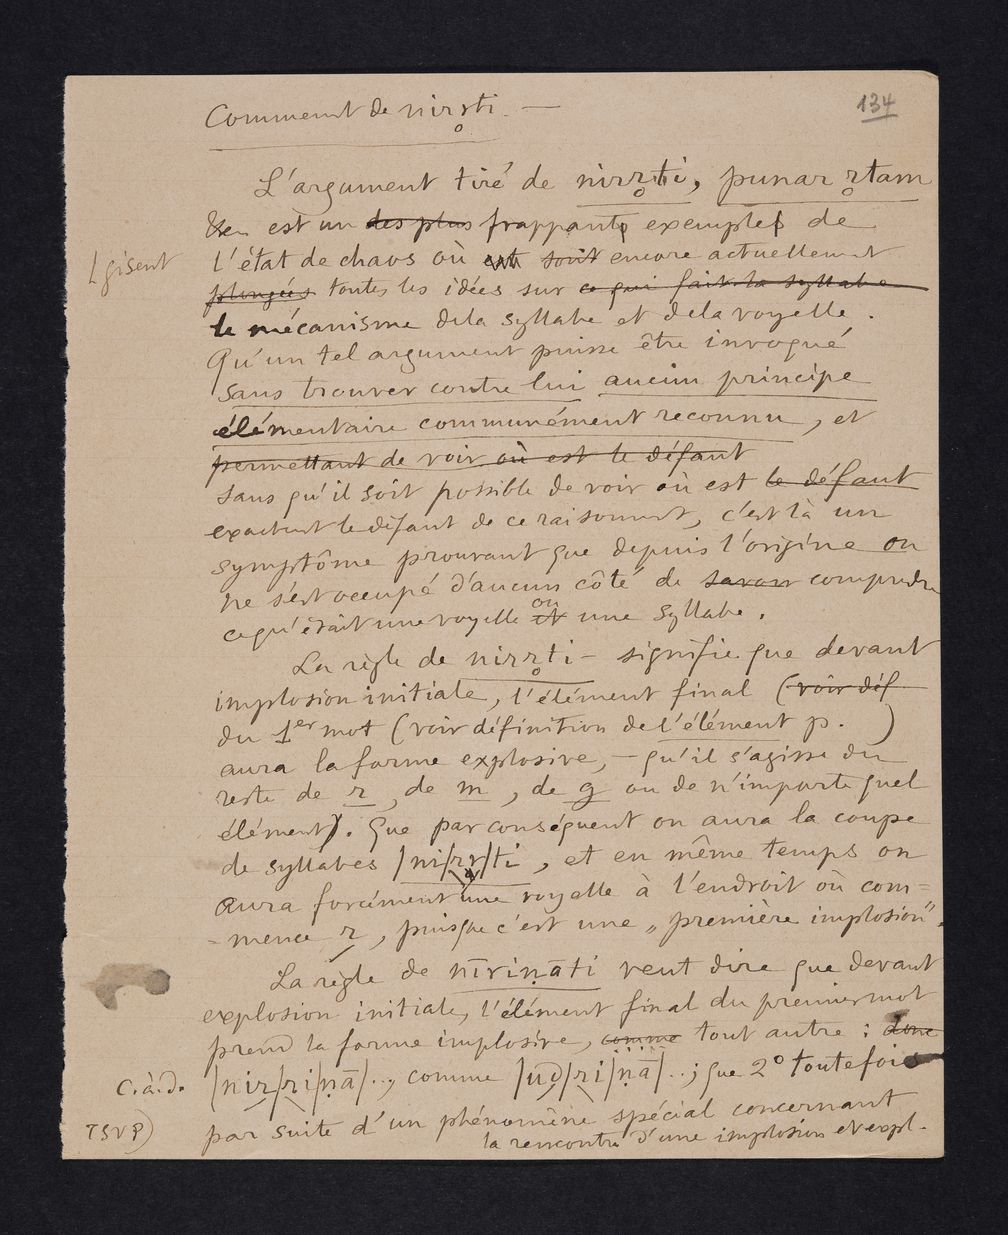 Comment de nirr̥ti. —
134
L'argument tiré de nirr̥ti, punar r̥tam
est un des plus frappants exemples de
⌊gisent
l'état de chaos où soit encore actuellement
plongées toutes les idées sur ce qui fait la syllabe
le mécanisme de la syllabe et de la voyelle.
Qu'un tel argument puisse être invoqué
sans trouver contre lui aucun principe
élémentaire communément reconnu, et
permettant de voir où est le défaut
sans qu'il soit possible de voir où est le défaut
exactement le défaut de ce raisonnement, c'est là un
symptôme prouvant que depuis l'origine on
ne s'est occupé d'aucun côté de savoir comprendre
ce qu'était une voyelle et ou une syllabe.
La règle de nirr̥ti – signifie que devant
implosion initiale, l'élément final (voir déf
du 1er mot (voir définition de l'élément p. )
aura la forme explosive, – qu'il s'agisse du
reste de r, de m, de g ou de n'importe quel
élément). Que par conséquent on aura la coupe
de syllabes |ni|rr|ti, et en même temps on
aura forcément une voyelle à l'endroit où com=
=mence r, puisque c'est une „première implosion".
La règle de nīriṇāti veut dire que devant
explosion initiale, l'élément final du premier mot
prend la forme implosive, comme tout autre : donc
c.à.d. |nir|ri|ṇā|.., comme |ud|ri|ṇā|..; que 2° toutefois
TSVP)
par suite d'un phénomène spécial concernant
la rencontre d'une implosion et expl.